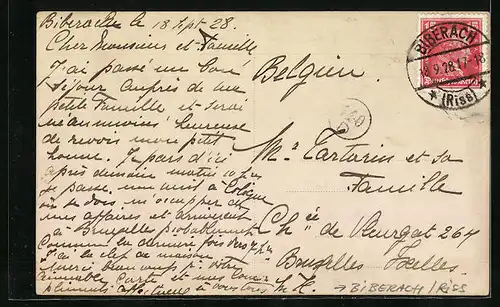 Biberach le 18 Sept 28.
Cher Monsieur et Famille
J'ai passé un bon
séjour auprès de ma
petite Famille et serai
néanmoins heureuse
de revoir mon petit
home. Je pars d'ici
après demain matin
Je passe une nuit à Cologne
où je dois m'occuper de
mes affaires et arriverait
à Bruxelles probablement
Comme la dernière fois
J'ai la clef de maison
Merci beaucoup p. votre
aimable carte et mes
à vous tous
Belgien.
Mr Tartarin et sa
Famille
Chée de Vleurgat 264
Bruxelles Ixelles.
→ BIBERACH/RISS
BIBERACH
18.9.28.17-18
* (Riss) *